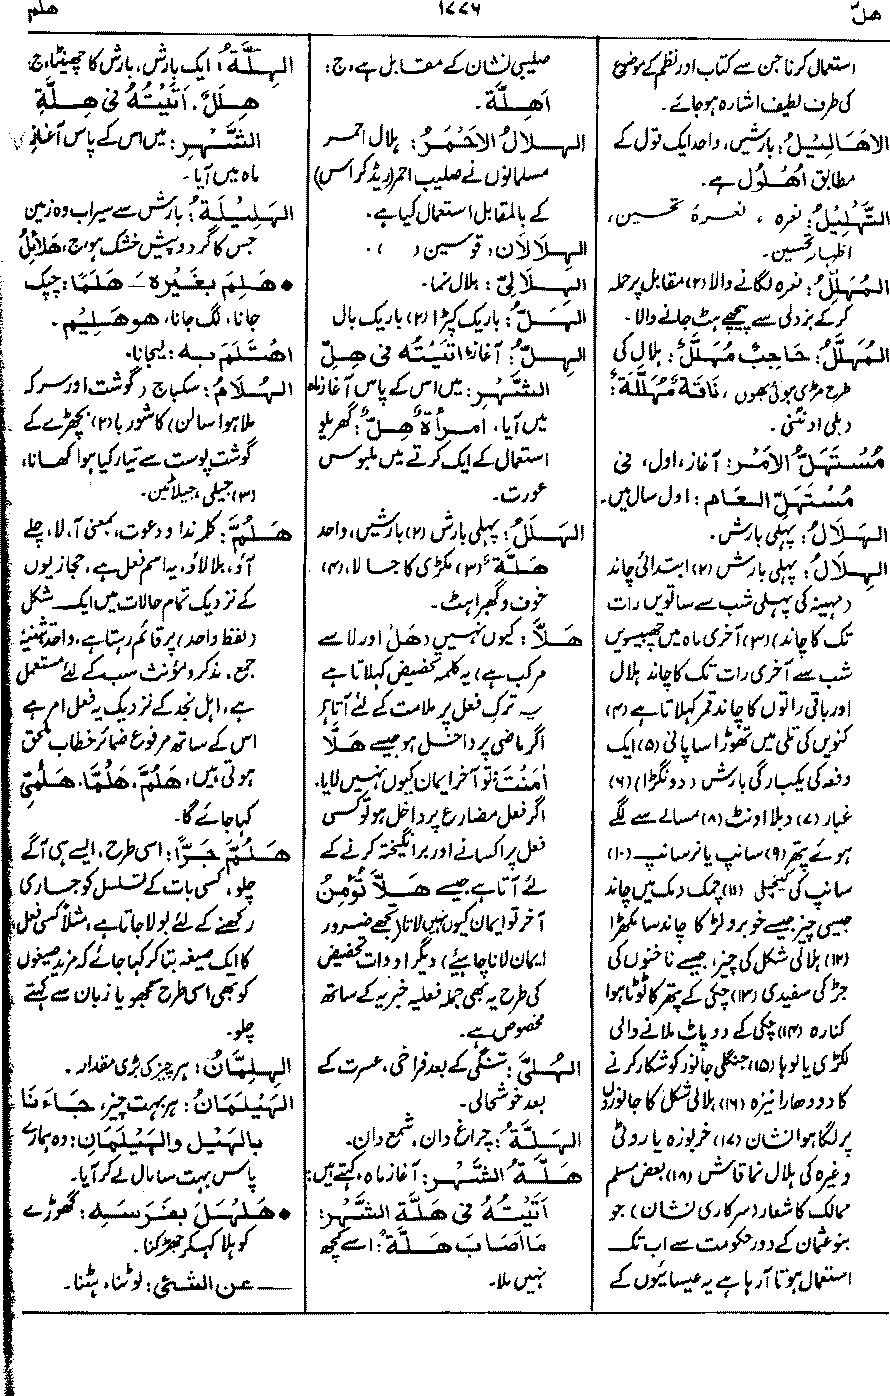 هلّ
۱۷۷۶
هلم
استعمال کرنا جن سے کتاب اور نظم کے موضوع
کی طرف لطیف اشارہ ہو جائے۔
الاھَالِیْلُ: بارشیں، واحد ایک قول کے
مطابق اُھْلُول ہے۔
التَّھْلِیْلُ: نعرہ ، نعرۂ تحسین،
اظہارِ تحسین۔
المُھَلِّلُ: نعرہ لگانے والا (۲) مقابل پر حملہ
کرکے بزدلی سے پیچھے ہٹ جانے والا۔
المُھَلَّلُ: حَاجِبٌ مُھَلَّلٌ: ہلال کی
طرح مڑی ہوئی بھوں ، نَاقَۃٌ مُھَلَّلَۃٌ:
دبلی اونٹنی۔
مُسْتَھَلُّ الاَمْرِ: آغاز، اول، فی
مُسْتَھَلِّ العَامِ: اول سال میں۔
الھَلَالُ: پہلی بارش۔
الھِلَالُ: پہلی بارش (۲) ابتدائی چاند
(مہینہ کی پہلی شب سے ساتویں رات
تک کا چاند) (۳) آخری ماہ میں چھبیسویں
شب سے آخری رات تک کا چاند ہلال
اور باقی راتوں کا چاند قمر کہلاتا ہے (۴)
کنویں کی تلی میں تھوڑا سا پانی (۵) ایک
دفعہ کی یکبارگی بارش (دونگڑا) (۶)
غبار (۷) دبلا اونٹ (۸) مسالے سے لگے
ہوئے پتھر (۹) سانپ یا نر سانپ (۱۰)
سانپ کی کیچلی (۱۱) چمک دمک میں چاند
جیسی چیز جیسے خوبرو لڑکا چاند سا مکھڑا
(۱۲) ہلالی شکل کی چیز، جیسے ناخنوں کی
جڑ کی سفیدی (۱۳) چکی کے پتھر کا ٹوٹا ہوا
کنارہ (۱۴) چکی کے دو پاٹ ملانے والی
لکڑی یا لوہا (۱۵) جنگلی جانور کو شکار کرنے
کا دو دھارا نیزہ (۱۶) ہلالی شکل کا جانوروں
پر لگا ہوا نشان (۱۷) خربوزہ یا روٹی
وغیرہ کی ہلال نما قاش (۱۸) بعض مسلم
ممالک کا شعار (سرکاری نشان) جو
بنو عثمان کے دور حکومت سے اب تک
استعمال ہوتا آرہا ہے یہ عیسائیوں کے
صلیبی نشان کے مقابل ہے، ج:
اَھِلَّۃ۔
الھِلَالُ الاَحْمَرُ: ہلالِ احمر
مسلمانوں نے صلیب احمر (ریڈ کراس)
کے بالمقابل استعمال کیا ہے۔
الھِلَالَانِ: قوسین ( )۔
الھِلَالِیُّ: ہلال نما۔
الھَلُّ: باریک کپڑا (۲) باریک بال
الھِلُّ: آغاز، اَتَیْتُہُ فی ھِلِّ
الشَّھْرِ: میں اس کے پاس آغاز ماہ
میں آیا، امرأۃٌ ھِلٌّ: گھریلو
استعمال کے ایک کرتے میں ملبوس
عورت۔
الھَلَلُ: پہلی بارش (۲) بارشیں، واحد
ھَلَّۃٌ (۳) مکڑی کا جالا، (۴)
خوف و گھبراہٹ۔
ھَلَّا: کیوں نہیں (ھَلْ اور لا سے
مرکب ہے) یہ کلمۂ تحضیض کہلاتا ہے
یہ ترکِ فعل پر ملامت کے لئے آتا ہے
اگر ماضی پر داخل ہو جیسے ھَلَّا
اٰمَنْتَ تو آخر ایمان کیوں نہیں لایا،
اگر فعل مضارع پر داخل ہو تو کسی
فعل پر اکسانے اور برانگیختہ کرنے کے
لئے آتا ہے، جیسے ھَلَّا تُؤْمِنُ
آخر تو ایمان کیوں نہیں لاتا (تجھے ضرور
ایمان لانا چاہیئے) دیگر ادوات تحضیض
کی طرح یہ بھی جملہ فعلیہ خبریہ کے ساتھ
مخصوص ہے۔
الھُلّیٰ: تنگی کے بعد فراخی، عسرت کے
بعد خوشحالی۔
الھَلَّۃُ: چراغ دان، شمع دان۔
ھَلَّۃُ الشَّھْرِ: آغاز ماہ، کہتے ہیں:
اَتَیْتُہُ فی ھَلَّۃِ الشَّھْرِ:
مَا اَصَابَ ھَلَّۃً: اسے کچھ
نہیں ملا۔
الھِلَّۃُ: ایک بارش، بارش کا چھینٹا، ج:
ھِلَلٌ، اَتَیْتُہُ فی ھِلَّۃِ
الشَّھْرِ: میں اس کے پاس آغازِ
ماہ میں آیا۔
الھَلِیْلَۃُ: بارش سے سیراب وہ زمین
جس کا گرد و پیش خشک ہو، ج، ھَلَائِلُ
• ھَلِمَ بِغَیْرِہِ ـَ ھَلَمًا: چپک
جانا، لگ جانا، ھو ھَلِیْم۔
اھْتَلَمَ بہ: لیجانا۔
الھُلَامُ: سکباج (گوشت اور سرکہ
ملا ہوا سالن) کا شوربا (۲) بچھڑے کے
گوشت پوست سے تیار کیا ہوا کھانا،
(۳) جیلی، جیلاٹین۔
ھَلُمَّ: کلمۂ ندا و دعوت، بمعنی آ، لا، چلے
آؤ، بلا لاؤ، یہ اسم فعل ہے، حجازیوں
کے نزدیک تمام حالات میں ایک شکل
(لفظ واحد) پر قائم رہتا ہے، واحد تثنیہ
جمع، مذکر و مؤنث سب کے لئے مستعمل
ہے، اہل نجد کے نزدیک یہ فعل امر ہے
اس کے ساتھ مرفوع ضمائر خطاب ملحق
ہوتی ہیں، ھَلُمَّ، ھَلُمَّا، ھَلُمِّیْ
کہا جائے گا۔
ھَلُمَّ جَرًّا: اسی طرح، ایسے ہی آگے
چلو، کسی بات کے تسلسل کو جاری
رکھنے کے لئے بولا جاتا ہے، مثلاً کسی فعل
کا ایک صیغہ بتا کر کہا جائے کہ مزید صیغوں
کو بھی اسی طرح سمجھو یا زبان سے کہتے
چلو۔
الھِلِمَّانُ: ہر چیز کی بڑی مقدار۔
الھَیْلَمَانُ: ہر بہت چیز، جَاءَنَا
بِالھَیْلِ والھَیْلَمَانِ: وہ ہمارے
پاس بہت سا مال لے کر آیا۔
• ھَلْھَلَ بِفَرَسِہِ: گھوڑے
کو ہلا کہہ کر جھڑکنا۔
— عن الشئی: لوٹنا، ہٹنا۔